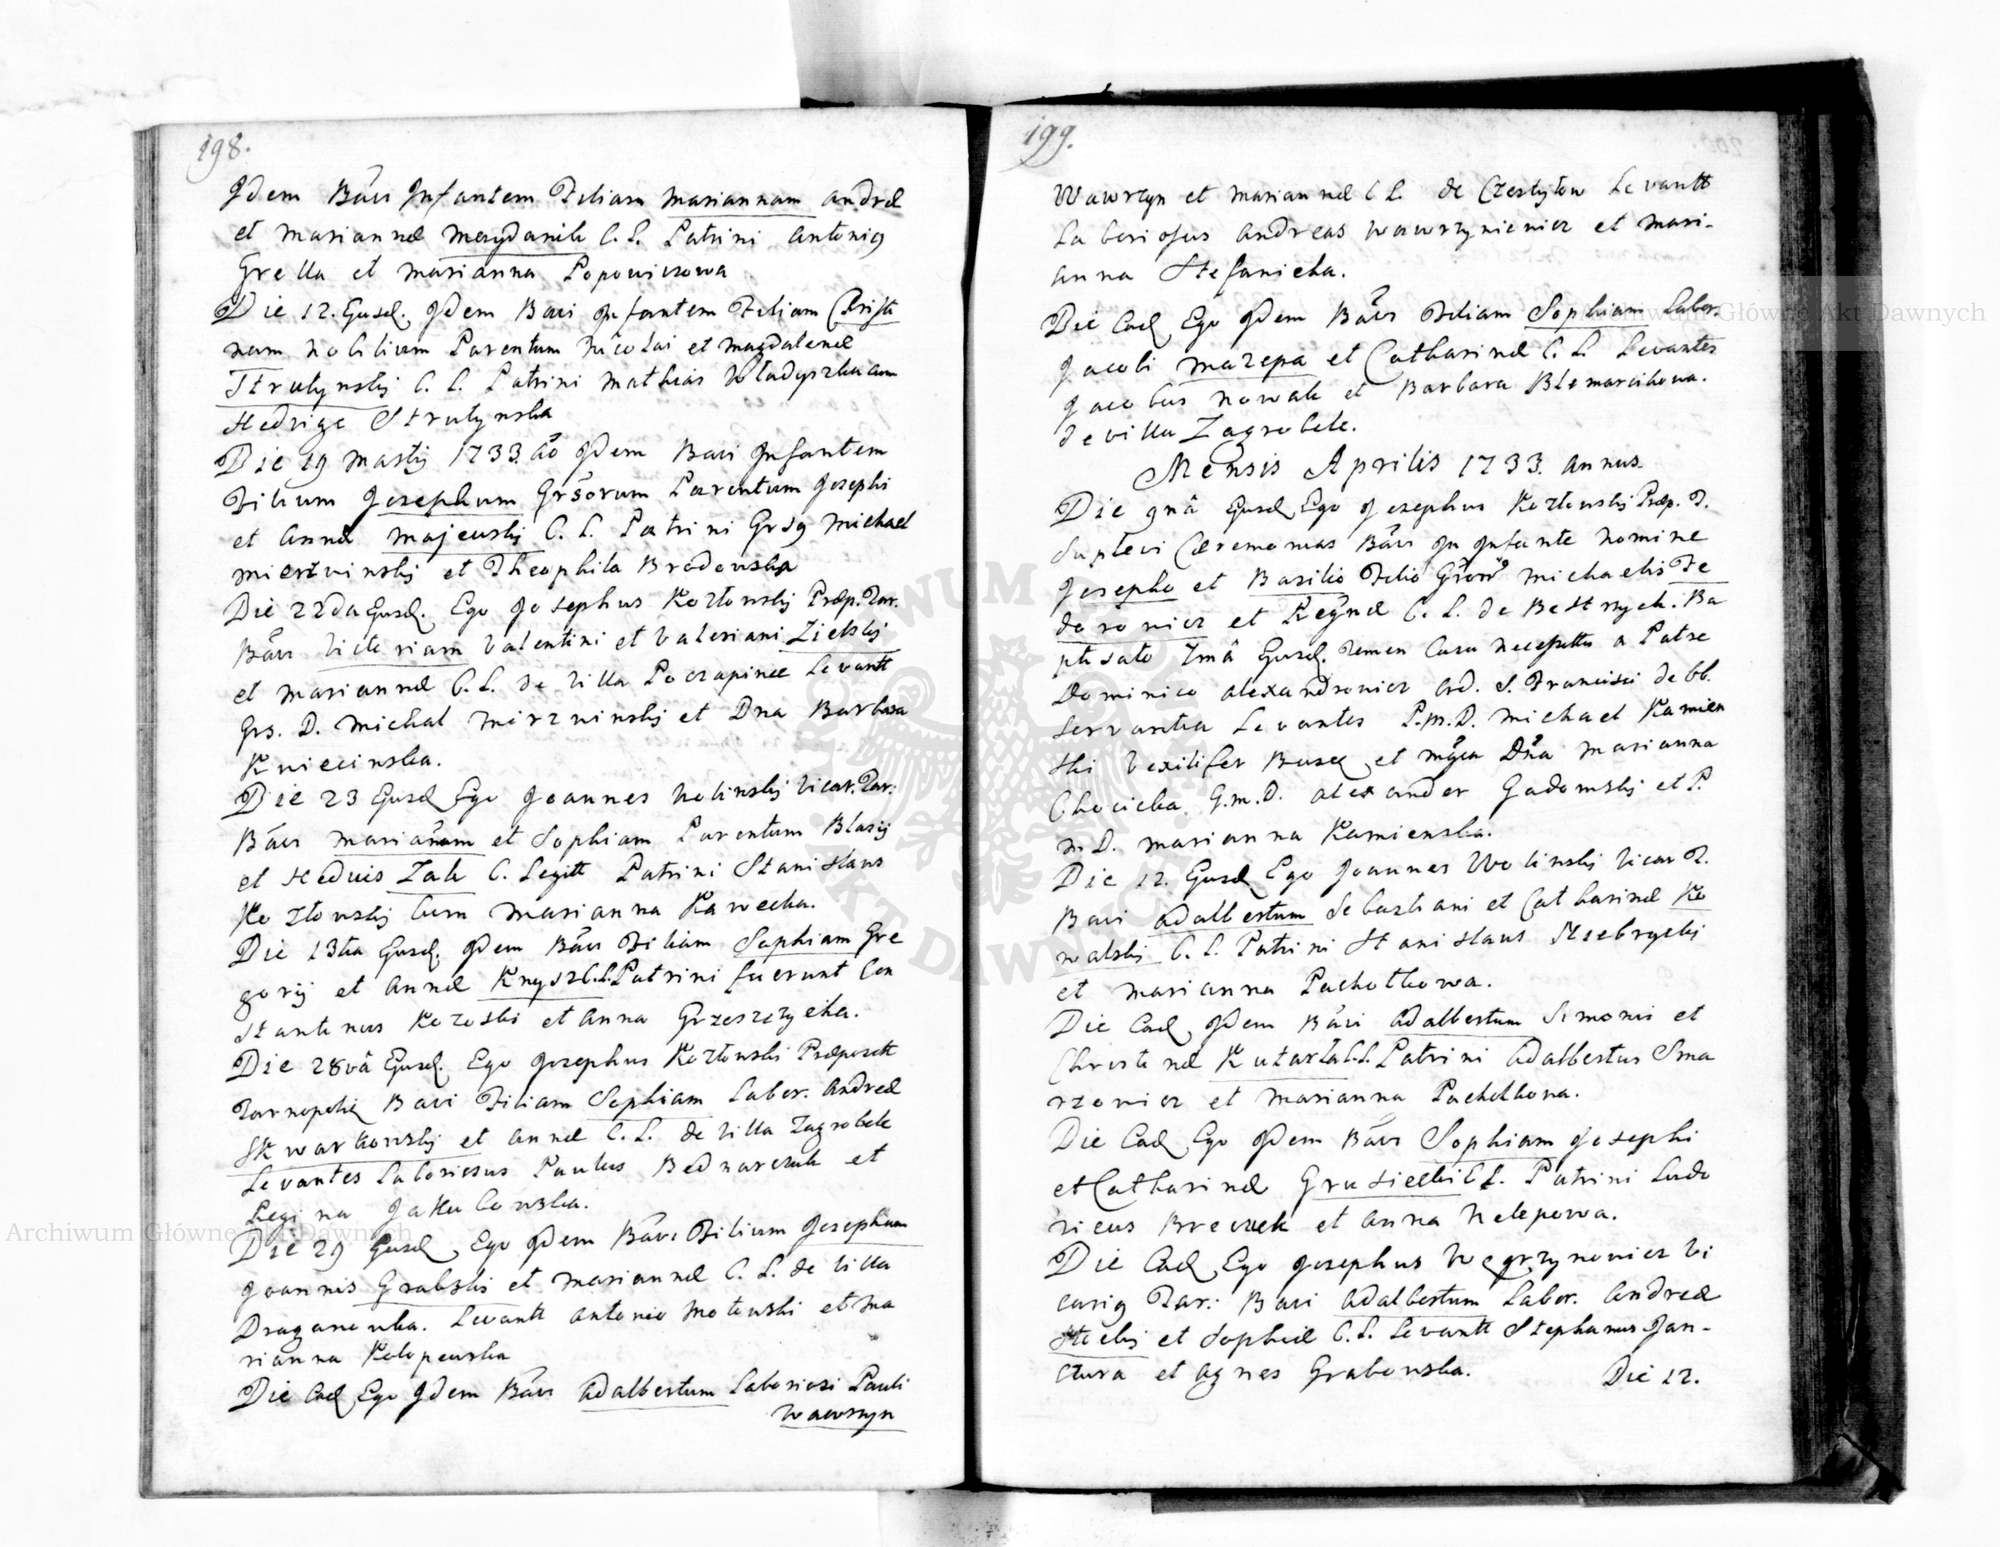 198.
Idem Bavi Infantem Filiam Mariannam Andreæ
et Mariannæ Magdanik C. L. Patrini Antonig
Grella et Marianna Popowiczowa
Die 12. Eusd. Idem Bavi Infantem Filiam Christi
nam Nobilium Parentum Nicolai et Magdalenæ
Strutynskij C. L. Patrini Mathias Wladyszka cum
Hedvige Strutynska
Die 19 Martij 1733 aô Idem Bavi Infantem
Filium Josephum Grsorum Parentum Josephi
et Annæ Majewskij C. L. Patrini Grsg Michael
Mierzwinskij et Theophila Brodowska
Die 22da Eusd. Ego Josephus Kozłowskij Præp. Tar.
Bavi Victoriam Valentini et Valeriani Zielskij
et Mariannæ C. L. de Villa Poczapince Levantt
Grs. D. Michal Mirzwinskij et Dna Barbara
Kwiecinska.
Die 23 Eusd Ego Joannes Wolinskij Vicar. Tar:
Bavi Mariannam et Sophiam Parentum Blasij
et Heduis Zak C. Legitt Patrini Stanislaus
Kozłowskij cum Marianna Kawecka.
Die 13tia Eusd. Idem Bavi Filiam Sophiam Gre
gorij et Annæ Knysz C. L. Patrini fuerunt Con
stantinus Kozoski et Anna Grzeszczycha.
Die 28va Eusd. Ego Josephus Kozłowski Præpositt
Tarnopolig Bavi Filiam Sophiam Labor. Andreæ
Skwarkowskij et Annæ C. L. de Villa Zagrobele
Levantes Laboriosus Paulus Bednarczuk et
Regina Jakubowska.
Die 29 Eusd Ego Idem Bavi Filium Josephum
Joannis Grabski et Mariannæ C. L. de Villa
Draganowka. Levantt Antonio Motowski et Ma
rianna Kolopewska
Die Ead Ego Idem Bavi Adalbertum Laboriosi Pauli
Wawrzyn
199.
Wawrzyn et Mariannæ C L. de Czestylow Levantt
Laboriosus Andreas Wawrzynievicz et Mari-
anna Stefanicha.
Die Ead Ego Idem Bavi Filiam Sophiam Labor.
Jacobi Mazepa et Catharinæ C. L. Levantes
Jacobus Nowak et Barbara Blemarcikowa.
de villa Zagrobele.
Mensis Aprilis 1733. annus.
Die 9nâ Eusd Ego Josephus Kozłowskij Præp. T.
Suplevi Cæremonias Bavi in Infante Nomine
Josepho et Basilio Filio Michaelis Te
dorowicz et Reginæ C. L. de Ba
ptisato Imâ Eusd. Casu Necessitt a Patre
Dominico Alexandrowicz Ord. S. Francisci de bb.
servantia Levantes P.M.D. Michael Kamien
ski Vexilifer Busc et Mgca Dna Marianna
Chocicka G.m.D. Alexander Gadomskij et P.
M. D. Marianna Kamienska.
Die 12. Eusd Ego Joannes Wolinskij Vicar T.
Bavi Adalbertum Sebastiani et Catharinæ Ko
walskij C. L. Patrini Stanislaus Srebryckij
et Marianna Pachotkowa.
Die Ead Idem Bavi Adalbertum Simonis et
Christinæ Kutarta C. L. Patrini Adalbertus Sma
rzowicz et Marianna Pachotkowa.
Die Ead Ego Idem Bavi Sophiam Josephi
et Catharinæ Grusiecki C L. Patrini Ludo
vicus Breczek et Anna Nelepowa.
Die Ead Ego Josephus Węgrzynowicz Vi
carig Tar: Bavi Adalbertum Labor. Andreæ
et Sophiæ C. L. Levantt Stephanus Jan-
czura et Agnes Grabowska. Die 12.
Archiwum Główne Akt Dawnych
Archiwum Główne Akt Dawnych
ARCHIWUM GŁÓWNE AKT DAWNYCH